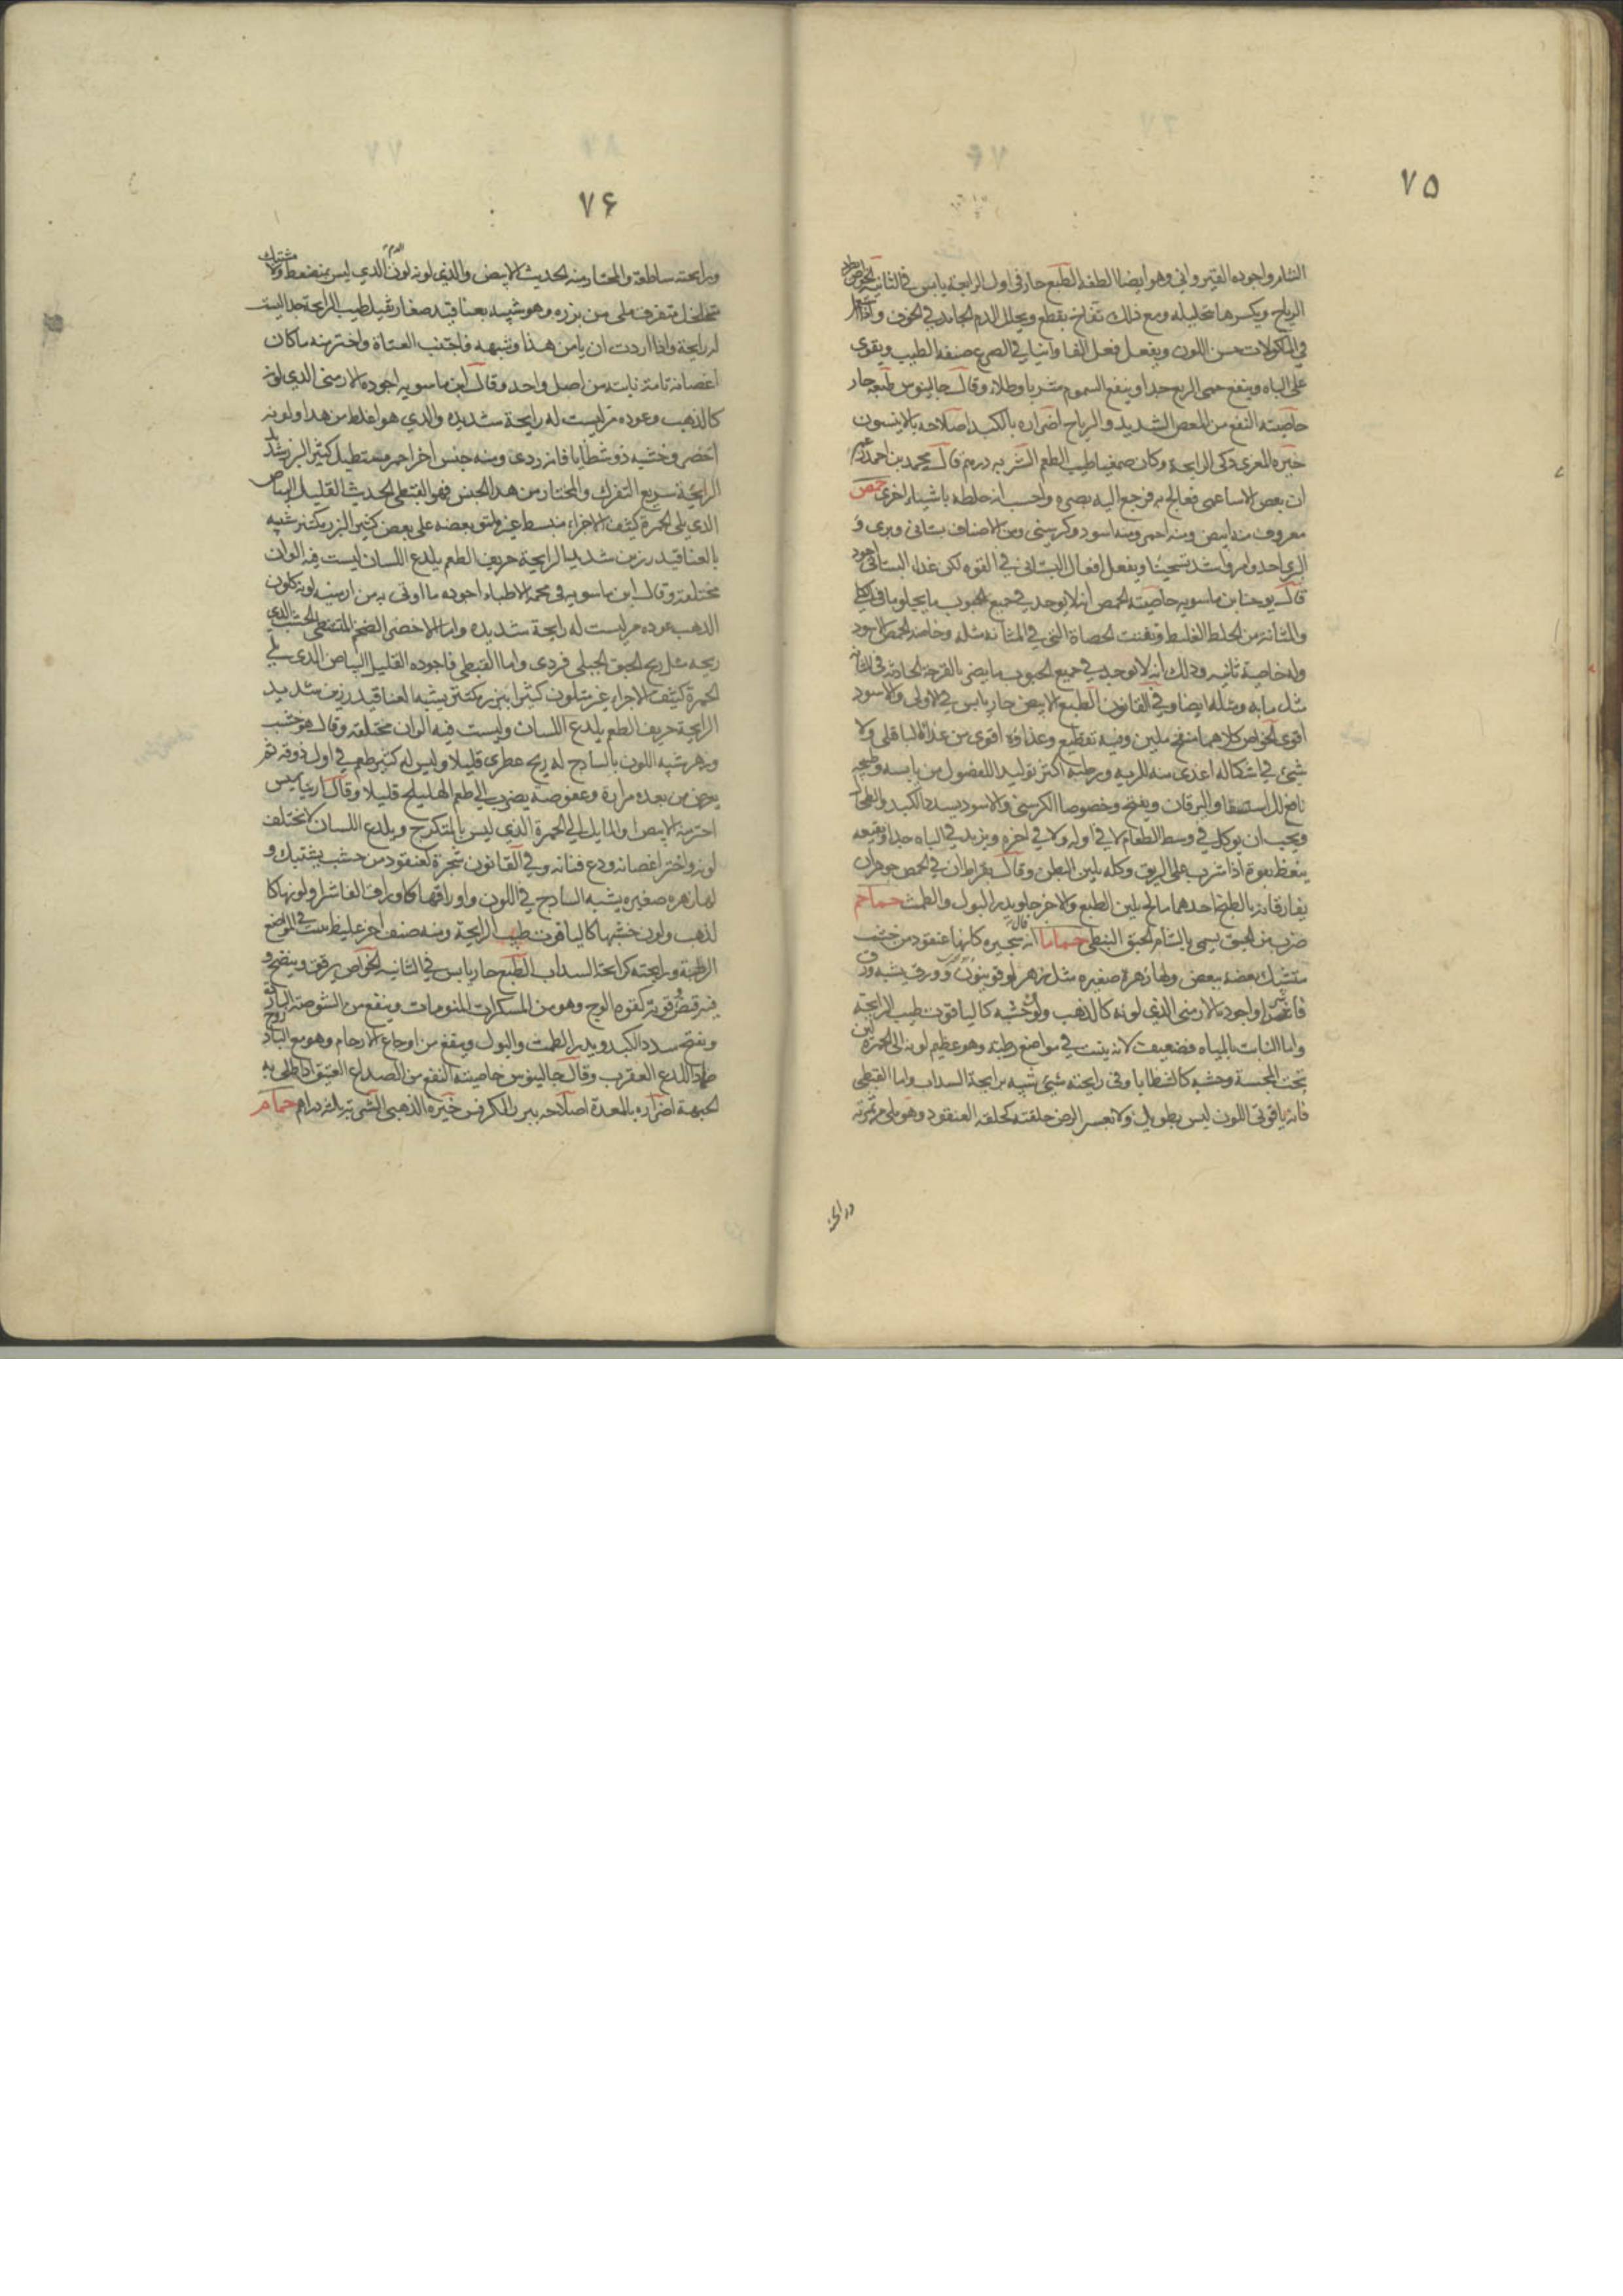 ٧٥
الشام واجوده القيرواني وهو ايضا الطفه الطبع حار في اول الرابعة يابس في الثانية الخواص طرد
الرياح ويكسرها بتحليله ومع ذلك نفاخ يقطع ويحلل الدم الجامد في الجوف
في المأكولات حسن اللون ويفعل فعل الفاوانيا في الصرع ضيفه الطبيب ويقوي
على الباه وينفع حمى الربع جدا وينفع السموم شربا وطلاء وقال جالينوس طبعه حار
خاصيته النفع من المغص الشديد والرياح اضراره بالكبد اصلاحه بالانيسون
خيره المغري ذكي الرايحة وكان صمغيا طيب الطعم الشربه درهم قال محمد بن احمد
ان بعض الناس عمي فعالج به فرجع اليه بصره واحسب انه خلطه باشياء اخرى حمص
معروف منه ابيض ومنه احمر ومنه اسود وكرسني ومن الاصناف بستاني وبري و
البري احد وامر واشد تسخينا ويفعل افعال البستاني في القوه لكن غذاء البستاني اجود
قال يوحنا بن ماسويه خاصيته الحمص انه لا يوجد في جميع الحبوب ما يجلو ما في الكلى
والمثانه من الخلط الغليظ وتفتيت الحصاة التي في المثانه مثله وخاصه الحمص الاسود
وله خاصية ثانيه وذلك انه لا يوجد في جميع الحبوب ما يضر بالقرحة الحادثه في المثانه
مثل ما به ومثله ايضا وفي القانون الطبع الابيض حار يابس في الاولى والاسود
اقوى الخواص كلاهما منفخ ملين وفيه تقطيع وغذاؤه اقوى من غذاء الباقلى ولا
شيئ في اشكاله اغذى منه للريه ورطبه اكثر توليدا للفضول من يابسه وطبيخه
نافع للاستسقا واليرقان ويفتح وخصوصا الكرسني والاسود سدد الكبد والطحال
ويجب ان يوكل في وسط الطعام لا في اوله ولا في اخره ويزيد في الباه جدا ونقيعه
ينعظ بقوة اذا شرب على الريق وكله يلين البطن وقال بقراط ان في الحمص جوهران
يفارقانه بالطبخ احدهما مالح يلين الطبع والاخر حلو يدر البول والطمث حماحم
ضرب من الحبق يسمى بالشام الحبق النبطي حماما قال انه شجيره كانها عنقود من خشب
مشتبك بعضه ببعض ولها زهرة صغيره مثل زهر لوقوينون وورق يشبه ورق
فاشرا واجوده الارمني الذي لونه كالذهب ولون خشبه كالياقوت طيب الرايحة
واما النابت بالمياه فضعيف لانه ينبت في مواضع رطبه وهو عظيم لونه الى الخضرة لين
تحت المجسة وخشبه كالشظايا وفي رايحته شيئ شبيه برايحة السداب واما القبطي
فانه ياقوتي اللون ليس بطويل ولا بعسر الرض خلقته كخلقة العنقود وهو ملي من ثمرته
ورايحته
٧۶
ورايحته ساطعة والمختار منه الحديث الابيض والذي لونه لون الدم الذي ليس بمنضغط ولا مشتبك
متخلخل متفرق ملى من بزره وهو شبيه بعناقيد صغار ثقيل طيب الرايحة جدا ليست
له رايحة واذا اردت ان يامن هذا وشبهه فاجتنب الفتاة واختر منه ما كان
اغصانه تامة نابته من اصل واحد وقال ابن ماسويه اجوده الارمني الذي لونه
كالذهب وعوده مر ليست له رايحة شديده والذي هو اغلظ من هذا ولونه
اخضر وخشبه ذو شظايا فانه ردي ومنه جنس اخر احمر مستطيل كثير البزر شديد
الرايحة سريع التفرك والمختار من هذا الجنس فهو القبطي الحديث القليل البياض
الذي يلي الحمرة كثيف الاجزاء منبسط غير ملتو بعضه على بعض كثير البزر مكتنز شبيه
بالعناقيد رزين شديد الرايحة حريف الطعم يلدع اللسان ليست فيه الوان
مختلفة وقال ابن ماسويه في محمة الاطباء اجوده ما اوتي به من ارمنيه لونه كلون
الذهب عوده مر ليست له رايحة شديده واما الاخضر الضخم المتشظي الخشب الذي
ريحه مثل ريح الحبق الجبلي فردي واما القبطي فاجوده القليل البياض الذي يلي
الحمرة كثيف الاجزاء غير متلون كثير البزر مكتنز يشبه العناقيد رزين شديد
الرايحة حريف الطعم يلدع اللسان وليست فيه الوان مختلفه وقال هو خشب
وزهر شبيه اللون بالسادج له ريح عطري قليلا وليس له كثير طعم في اول ذوقه ثم
يعرض من بعده مرارة وعفوصة يضرب الى طعم الهليلج قليلا وقال اريباسيس
اختر منه الابيض او المايل الى الحمرة الذي ليس بالمتكرج ويلدع اللسان لا تختلف
لونه واختر اغصانه ودع فتاته وفي القانون شجرة كعنقود من خشب يشتبك و
لها زهره صغيره يشبه السادج في اللون واوراقها كاوراق الفاشرا ولونها كا
لذهب ولون خشبها كالياقوت طيب الرايحة ومنه صنف اخر غليظ ينبت في المواضع
الرطبة ورايحته كرايحة السداب الطبع حار يابس في الثانيه الخواص يرقق وينضج و
فيه قبض وقوته كقوه الوج وهو من المسكرات المنومات وينفع من الشوصة الباردة
ويفتح سدد الكبد ويدر الطمث والبول وينفع من اوجاع الارحام وهو مع الباذروج
ضماد اللدغ العقرب وقال جالينوس خاصيته النفع من الصداع العتيق اذا طلي به
الجبهة اضراره بالمعدة اصلاحه ببزر الكرفس خيره الذهبي الشربه ثلثه دراهم حمام